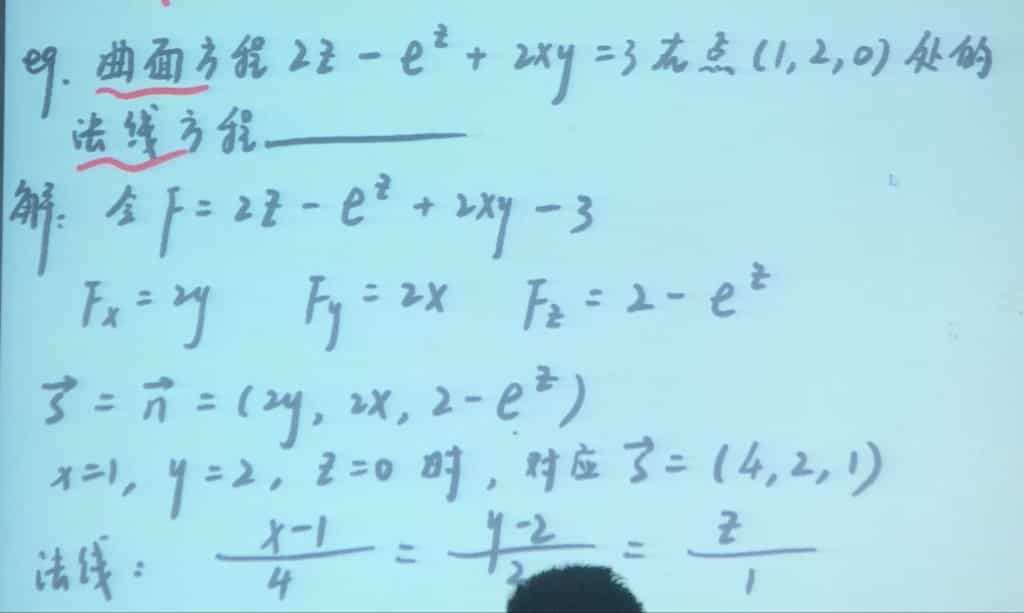 eg. 曲面方程 2z - e^z + 2xy = 3 在点 (1, 2, 0) 处的
法线方程______
解: 令 F = 2z - e^z + 2xy - 3
Fx = 2y Fy = 2x Fz = 2 - e^z
s⃗ = n⃗ = (2y, 2x, 2 - e^z)
x=1, y=2, z=0 时, 对应 s⃗ = (4, 2, 1)
法线: (x-1)/4 = (y-2)/2 = z/1